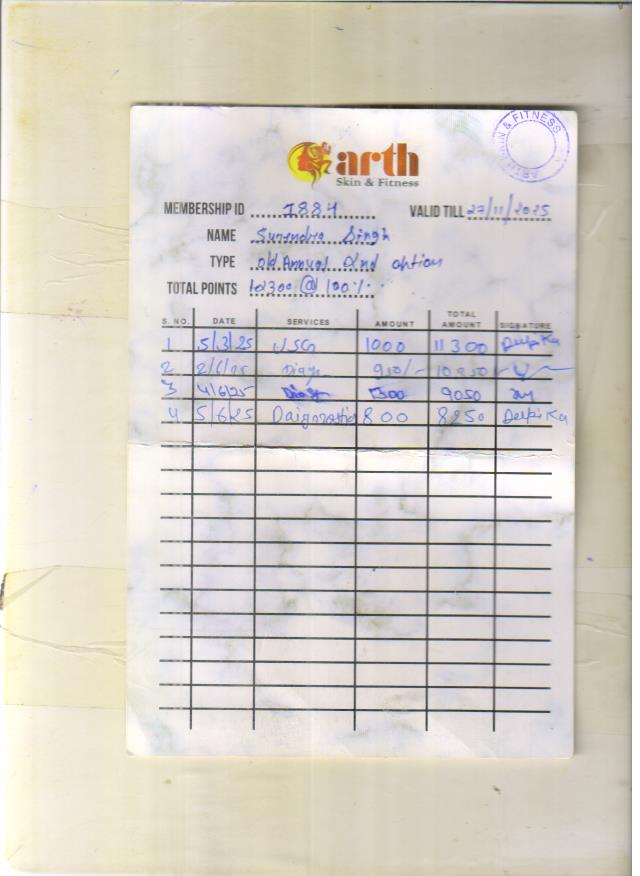 arth
Skin & Fitness
ARTH SKIN & FITNESS
MEMBERSHIP ID 7884 VALID TILL 27/11/2025
NAME Surendra Singh
TYPE old Annual 2nd option
TOTAL POINTS 12300 @ 100%
S. NO. DATE SERVICES AMOUNT TOTAL AMOUNT SIGNATURE
1 5/3/25 USG 1000 11300 Deepika
2 2/6/25 Diag 950/- 10350
3 4/6/25 Diag 1300 9050
4 5/6/25 Daignostic 800 8250 Deepika